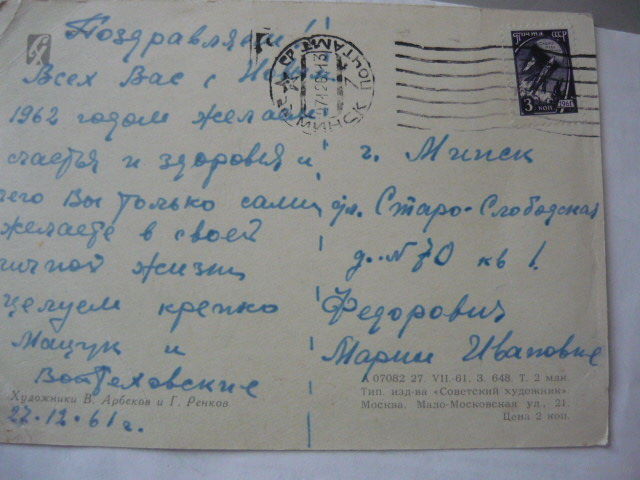 Поздравляем!
Всех Вас с
1962 годом желаем
счастья и здоровья и
чего Вы только сами
желаете в своей
личной жизни
целуем крепко
Мацук и
Войтеховские
22.12.61 г.
Художники В. Арбеков и Г. Ренков
МИНСК
ПОЧТАМТ
Почта СССР
1961
3 коп
г. Минск
ул. Старо-Слободская
д. № 70 кв 1.
Федорович
Марии Ивановне
А 07082 27. VII.-61. З. 648. Т. 2 млн.
Тип. изд-ва «Советский художник»
Москва, Мало-Московская ул., 21.
Цена 2 коп.